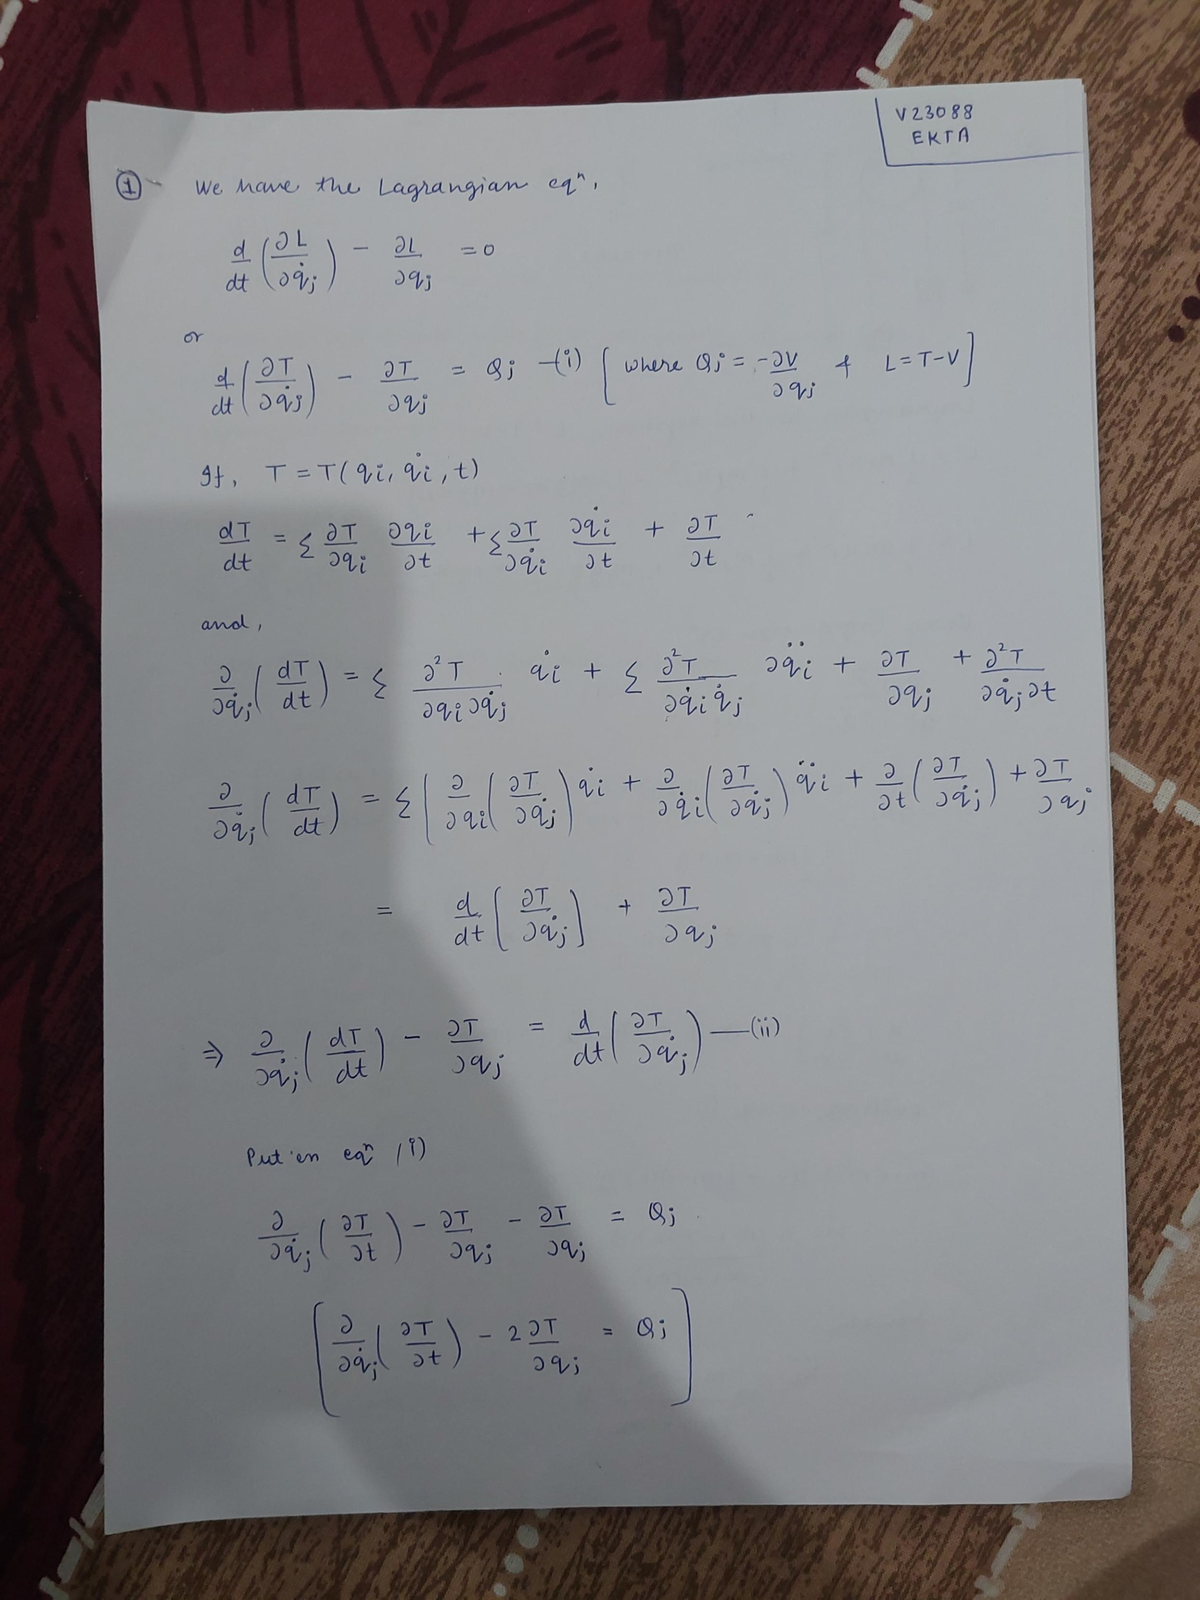 V23088
EKTA
① - We have the Lagrangian eqⁿ,
d/dt (∂L/∂q̇j) - ∂L/∂qj = 0
or
d/dt (∂T/∂q̇j) - ∂T/∂qj = Qj -(i) [where Qj = -∂V/∂qj & L = T-V]
If, T = T(qi, q̇i, t)
dT/dt = Σ ∂T/∂qi ∂qi/∂t + Σ ∂T/∂q̇i ∂q̇i/∂t + ∂T/∂t
and,
∂/∂q̇j (dT/dt) = Σ ∂²T/∂qi∂q̇j q̇i + Σ ∂²T/∂q̇i q̇j ∂q̈i + ∂T/∂qj + ∂²T/∂q̇j∂t
∂/∂q̇j (dT/dt) = Σ (∂/∂qi (∂T/∂q̇j) q̇i + ∂/∂q̇i (∂T/∂q̇j) q̈i + ∂/∂t (∂T/∂q̇j) + ∂T/∂qj
= d/dt [∂T/∂q̇j] + ∂T/∂qj
⇒ ∂/∂q̇j (dT/dt) - ∂T/∂qj = d/dt (∂T/∂q̇j) —(ii)
Put in eqⁿ (i)
∂/∂q̇j (∂T/∂t) - ∂T/∂qj - ∂T/∂qj = Qj
[∂/∂q̇j (∂T/∂t) - 2∂T/∂qj = Qj]